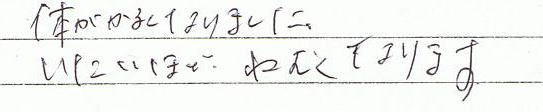 体がかるくなりました
いたいほど、ねむくなります